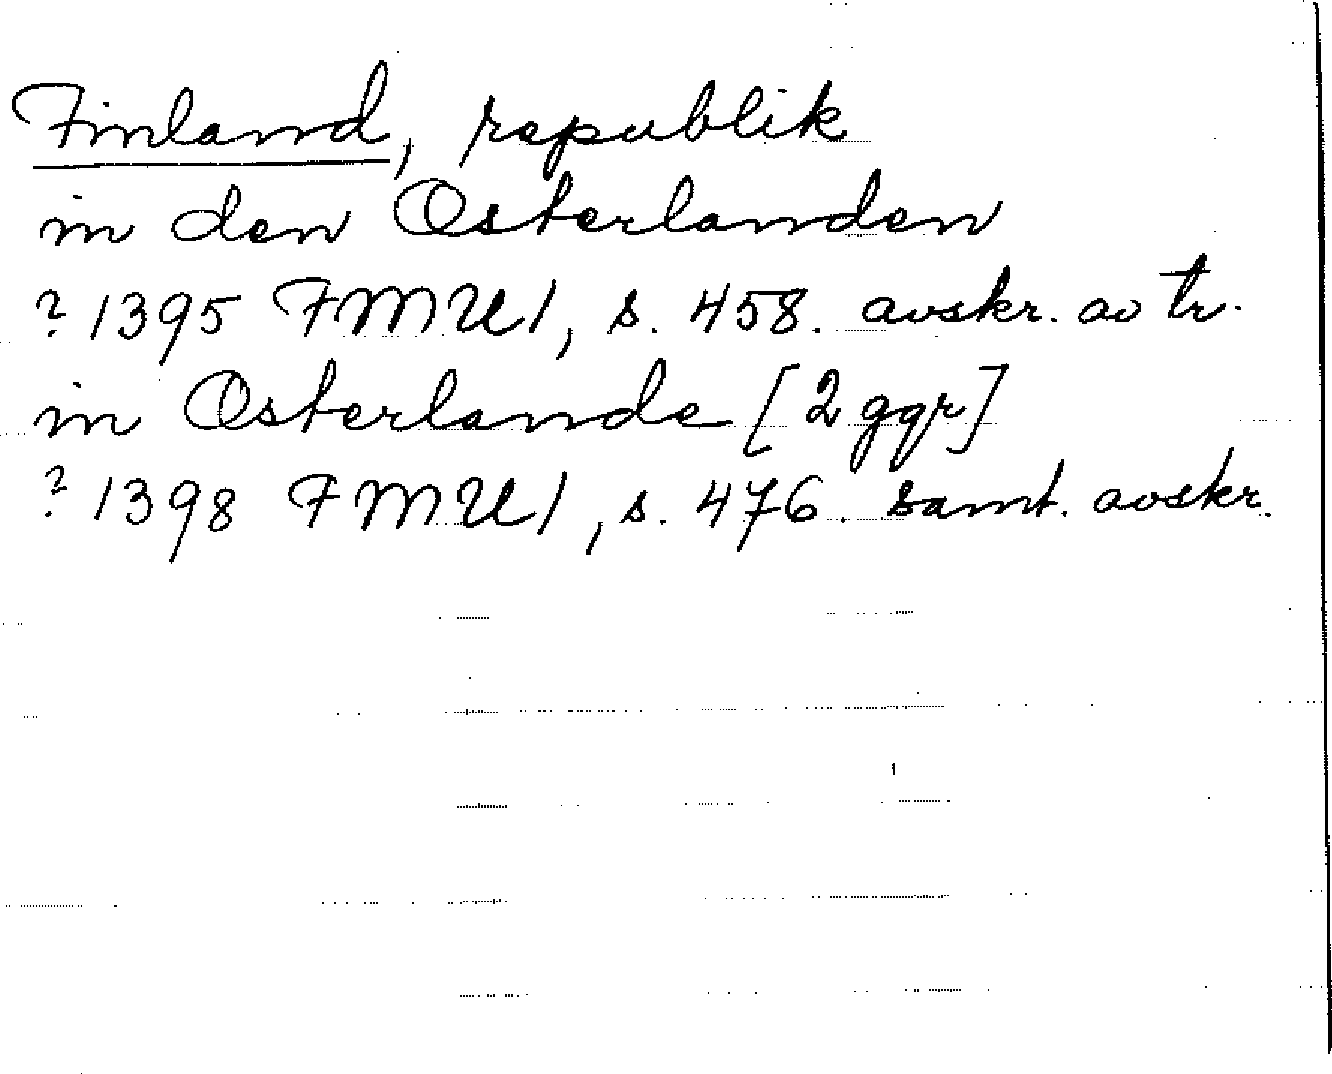 Finland, republik
in den Osterlanden
? 1395 FMU 1, s. 458. avskr. av tr.
in Osterlande [2 ggr]
? 1398 FMU 1, s. 476. samt. avskr.